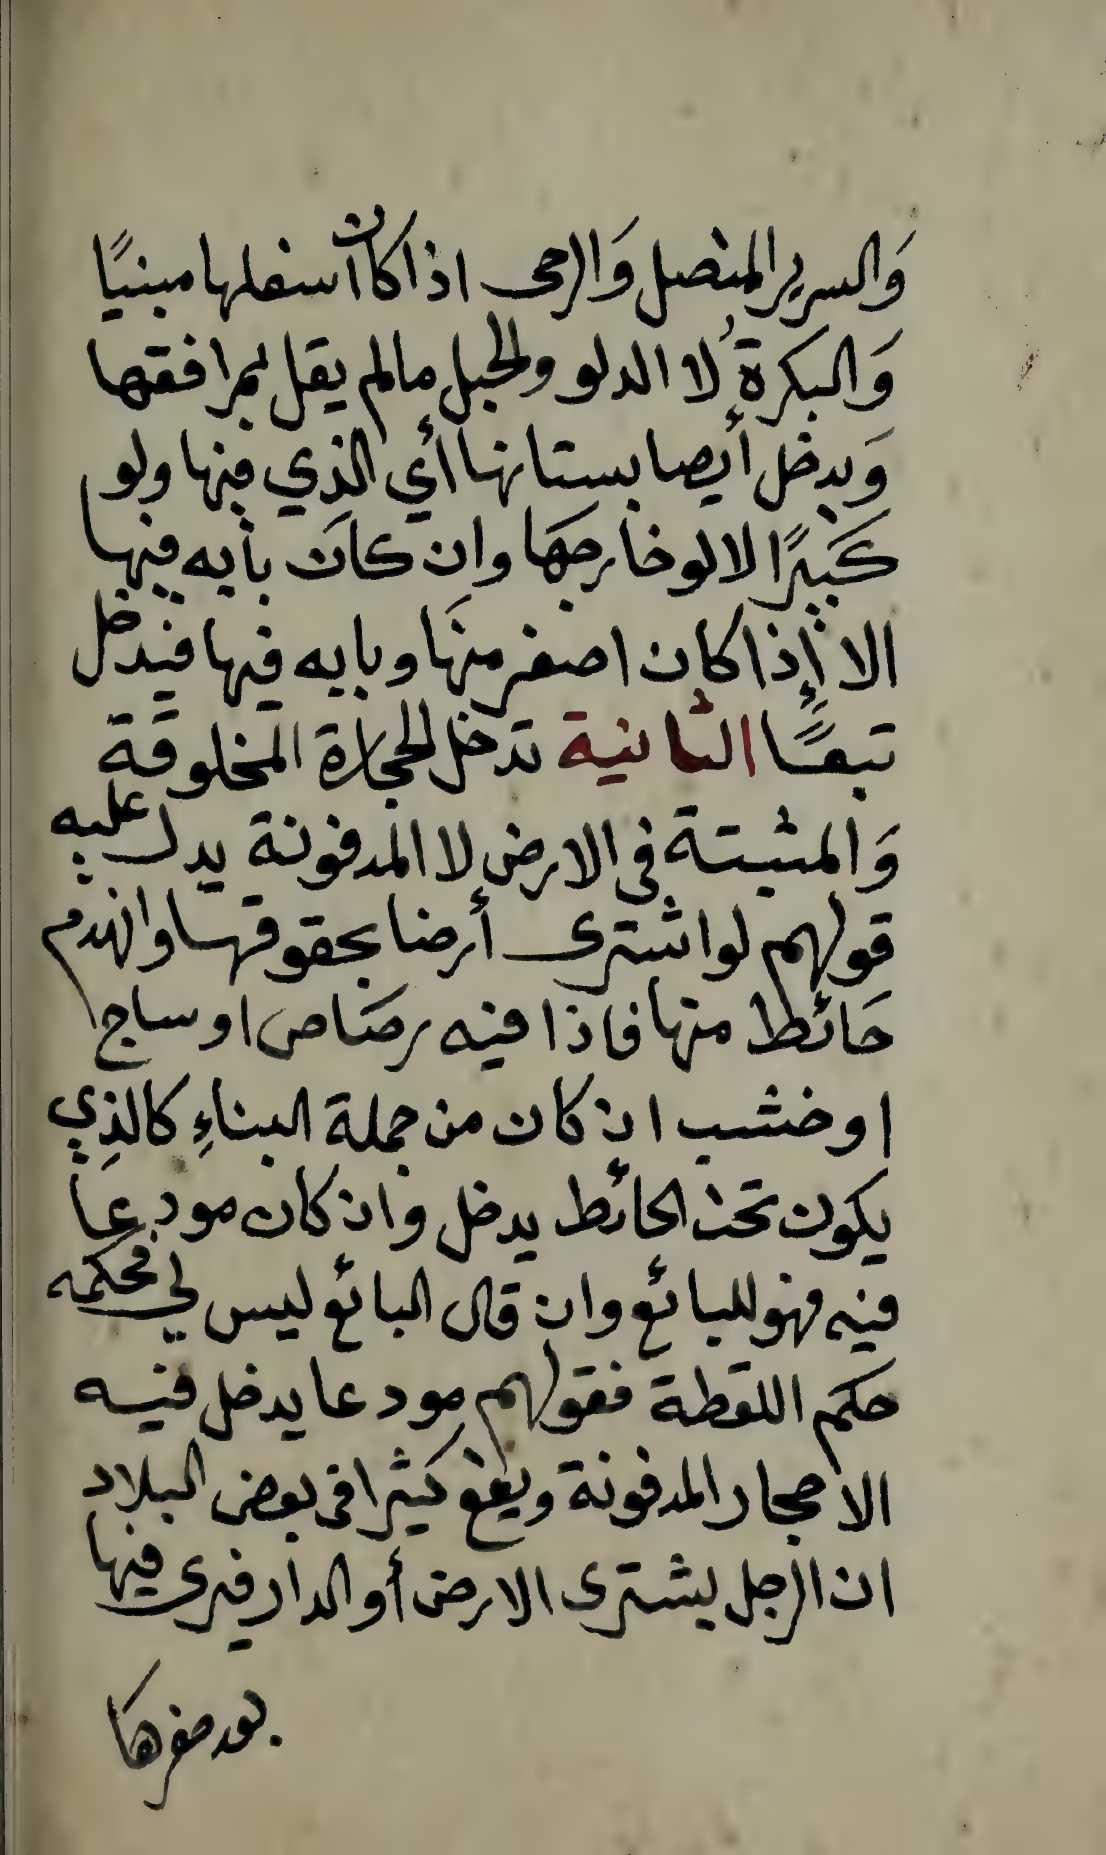 وَالسرير المتصل وَالرحى اذا كان اسفلها مبنيًا
وَالبكرة لا الدلو والحبل مالم يقل بمرافقها
وَيدخل أيضا بستانها أي الذي فيها ولو
كَبيرًا لا لو خارجَها وان كانَ بابه فيها
الا إذا كان اصغر منها وبابه فيها فيَدخل
تبعًا الثانية تدخل الحجارة المخلوقة
وَالمثبتة في الارض لا المدفونة يدل عليه
قولهم لو اشترى أرضا بحقوقها وانهدم
حَائط منها فاذا فيه رصَاص او ساج
او خشب ان كان من جملة البناءِ كالذِي
يكون تحت الحائط يدخل وان كان مودعًا
فيه فهو للبائع وان قال البائع ليس لي فحكمه
حكم اللقطة فقولهم مودعا يدخل فيه
الاحجار المدفونة ويقع كثيرا في بعض البلاد
ان الرجل يشترى الارض أو الدار فيرى فيها
بعد حفرها